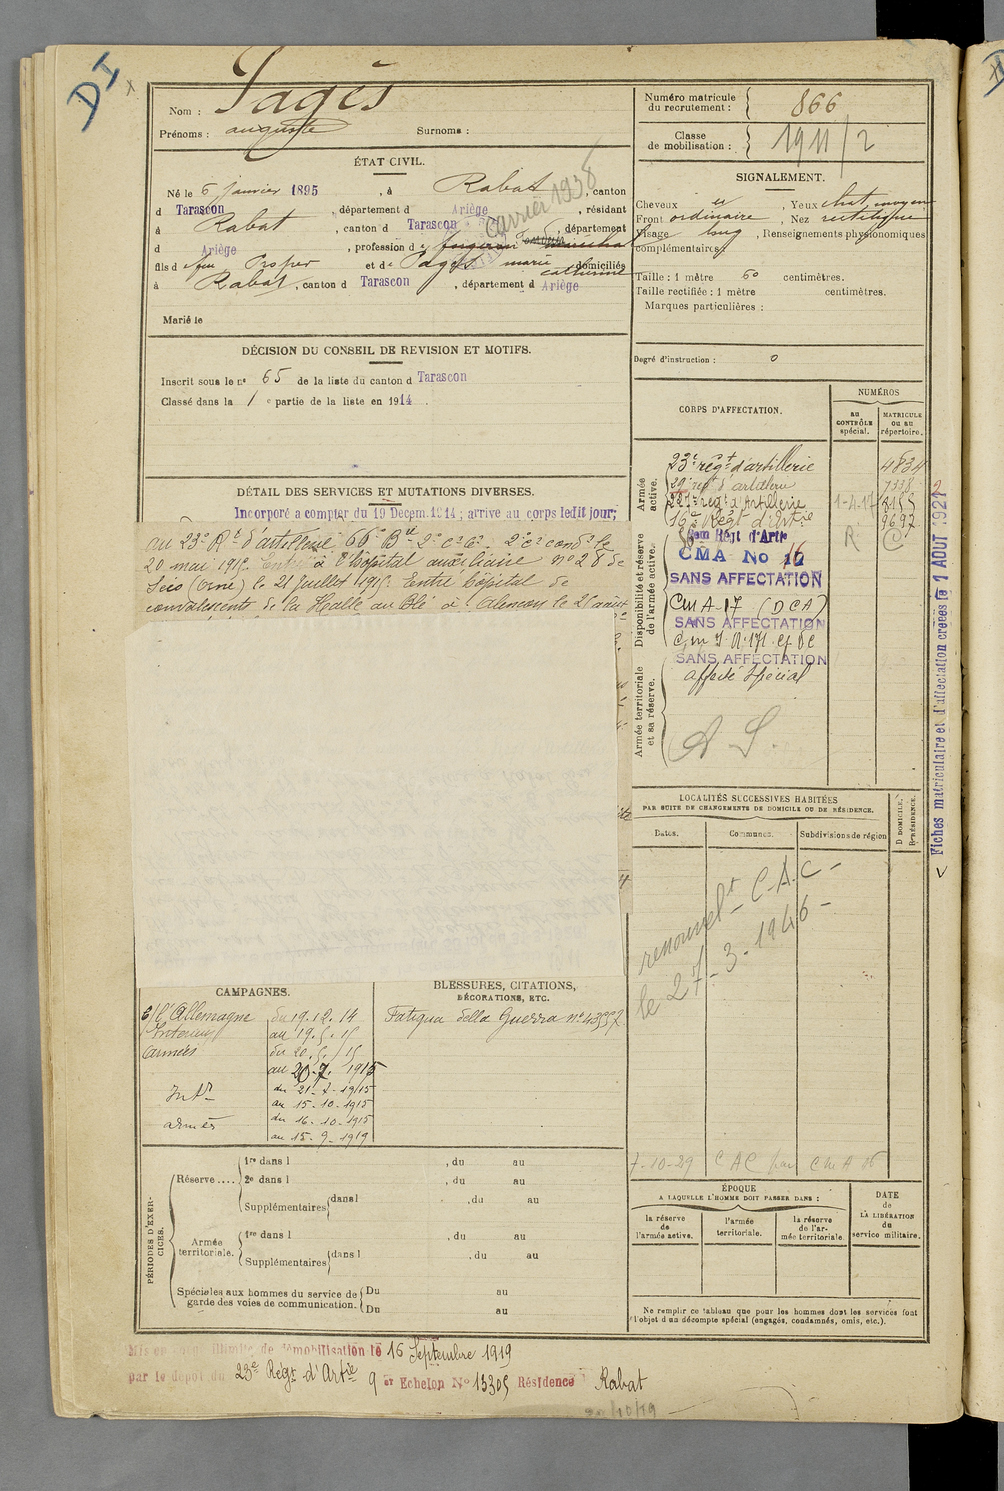 DI
Nom : Pagès
Prénoms : auguste Surnoms :
Numéro matricule du recrutement : 866
Classe de mobilisation : 1911/2
ÉTAT CIVIL.
Né le 6 janvier 1895, à Rabat, canton
d Tarascon, département d Ariège, résidant
à Rabat, canton d Tarascon, département
d Ariège, profession de forgeron
carrier 1938
fils de feu Prosper et de Pagès marie catherine domiciliés
à Rabat, canton d Tarascon, département d Ariège
Marié le
SIGNALEMENT.
Cheveux, Yeux chat. moyen
Front ordinaire, Nez rectiligne
Visage long, Renseignements physionomiques
complémentaires
Taille : 1 mètre 60 centimètres.
Taille rectifiée : 1 mètre centimètres.
Marques particulières :
Degré d'instruction : 0
DÉCISION DU CONSEIL DE REVISION ET MOTIFS.
Inscrit sous le nº 65 de la liste du canton d Tarascon
Classé dans la 1 e partie de la liste en 1914.
DÉTAIL DES SERVICES ET MUTATIONS DIVERSES.
Incorporé a compter du 19 Décem. 1914; arrive au corps ledit jour;
au 23e Rt d'artillerie 66e Bie 2e c. Ce. 2e c. condr le
20 mai 1915. Entré à l'hôpital auxiliaire nº 28 de
Sées (Orne) le 21 Juillet 1915. Entré hôpital de
convalescents de la Halle au Blé à Alençon le 21 août
CORPS D'AFFECTATION.
NUMÉROS
AU CONTRÔLE spécial.
MATRICULE OU AU répertoire.
Armée active.
23e régt d'artillerie 4834
29e regt d'artillerie 7338
221e regt d'Artillerie 1-4-17 8155
16e Régt d'Artie 9697
Disponibilité et réserve de l'armée active.
Régt d'Artie R C
CMA No 16
SANS AFFECTATION
CM A 17 (DCA)
SANS AFFECTATION
SANS AFFECTATION
Armée territoriale et sa réserve.
affecté Spécial
A S.
Fiches matriculaire et d'affectation créées le 1 AOUT 1921
LOCALITÉS SUCCESSIVES HABITÉES
PAR SUITE DE CHANGEMENTS DE DOMICILE OU DE RÉSIDENCE.
Dates. Communes. Subdivisions de région
D DOMICILE. R RÉSIDENCE.
renouvelt C.A.C -
le 27-3-1946 -
7-10-29 CAC par CMA 16
CAMPAGNES.
C/ l'Allemagne du 19.12.14
Intérieur au 19.5.15
armées du 20.5.15
au 20.7.1915
Intr du 21-7-1915
au 15-10-1915
armées du 16-10-1915
au 15-9-1919
BLESSURES, CITATIONS,
DÉCORATIONS, ETC.
Fatigua della Guerra nº 43557
PÉRIODES D'EXERCICES.
Réserve.... 1re dans l, du au
2e dans l, du au
Supplémentaires dans l, du au
Armée territoriale. 1re dans l, du au
Supplémentaires dans l, du au
Spéciales aux hommes du service de garde des voies de communication. Du au
Du au
ÉPOQUE
A LAQUELLE L'HOMME DOIT PASSER DANS :
la réserve de l'armée active.
l'armée territoriale.
la réserve de l'armée territoriale.
DATE de LA LIBÉRATION du service militaire.
Ne remplir ce tableau que pour les hommes dont les services font
l'objet d'un décompte spécial (engagés, condamnés, omis, etc.).
Mis en congé illimité de démobilisation le 16 Septembre 1919
par le dépôt du 23e Régt d'Artie 9 ar Echelon Nº 13305 Résidence Rabat